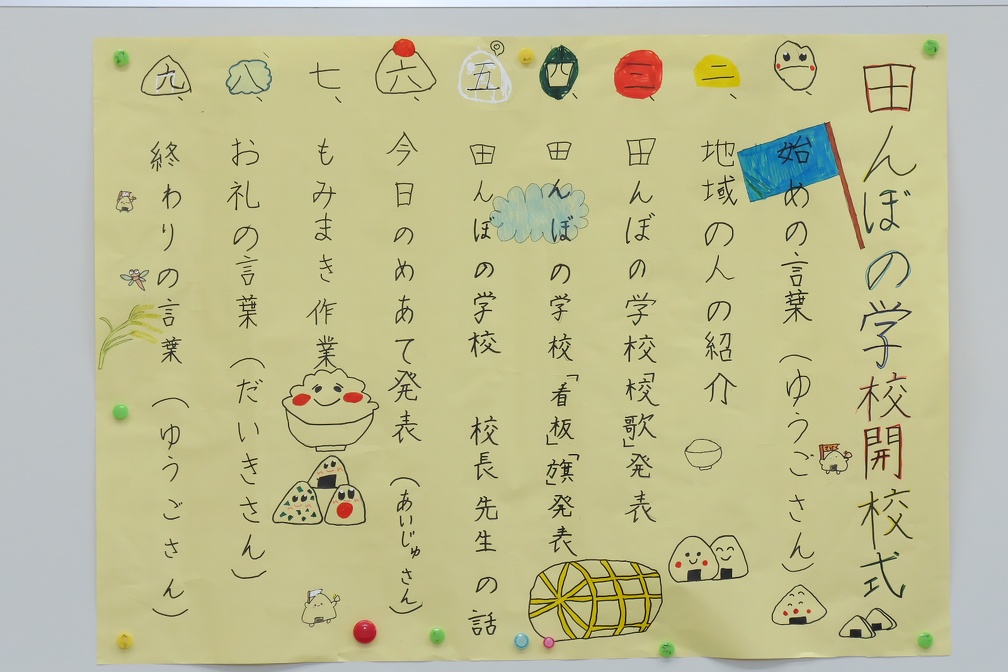 田んぼの学校開校式
始めの言葉（ゆうごさん）
二、地域の人の紹介
三、田んぼの学校「校歌」発表
四、田んぼの学校「看板」「旗」発表
五、田んぼの学校 校長先生の話
六、今日のめあて発表（あいじゅさん）
七、もみまき作業
八、お礼の言葉（だいきさん）
九、終わりの言葉（ゆうごさん）